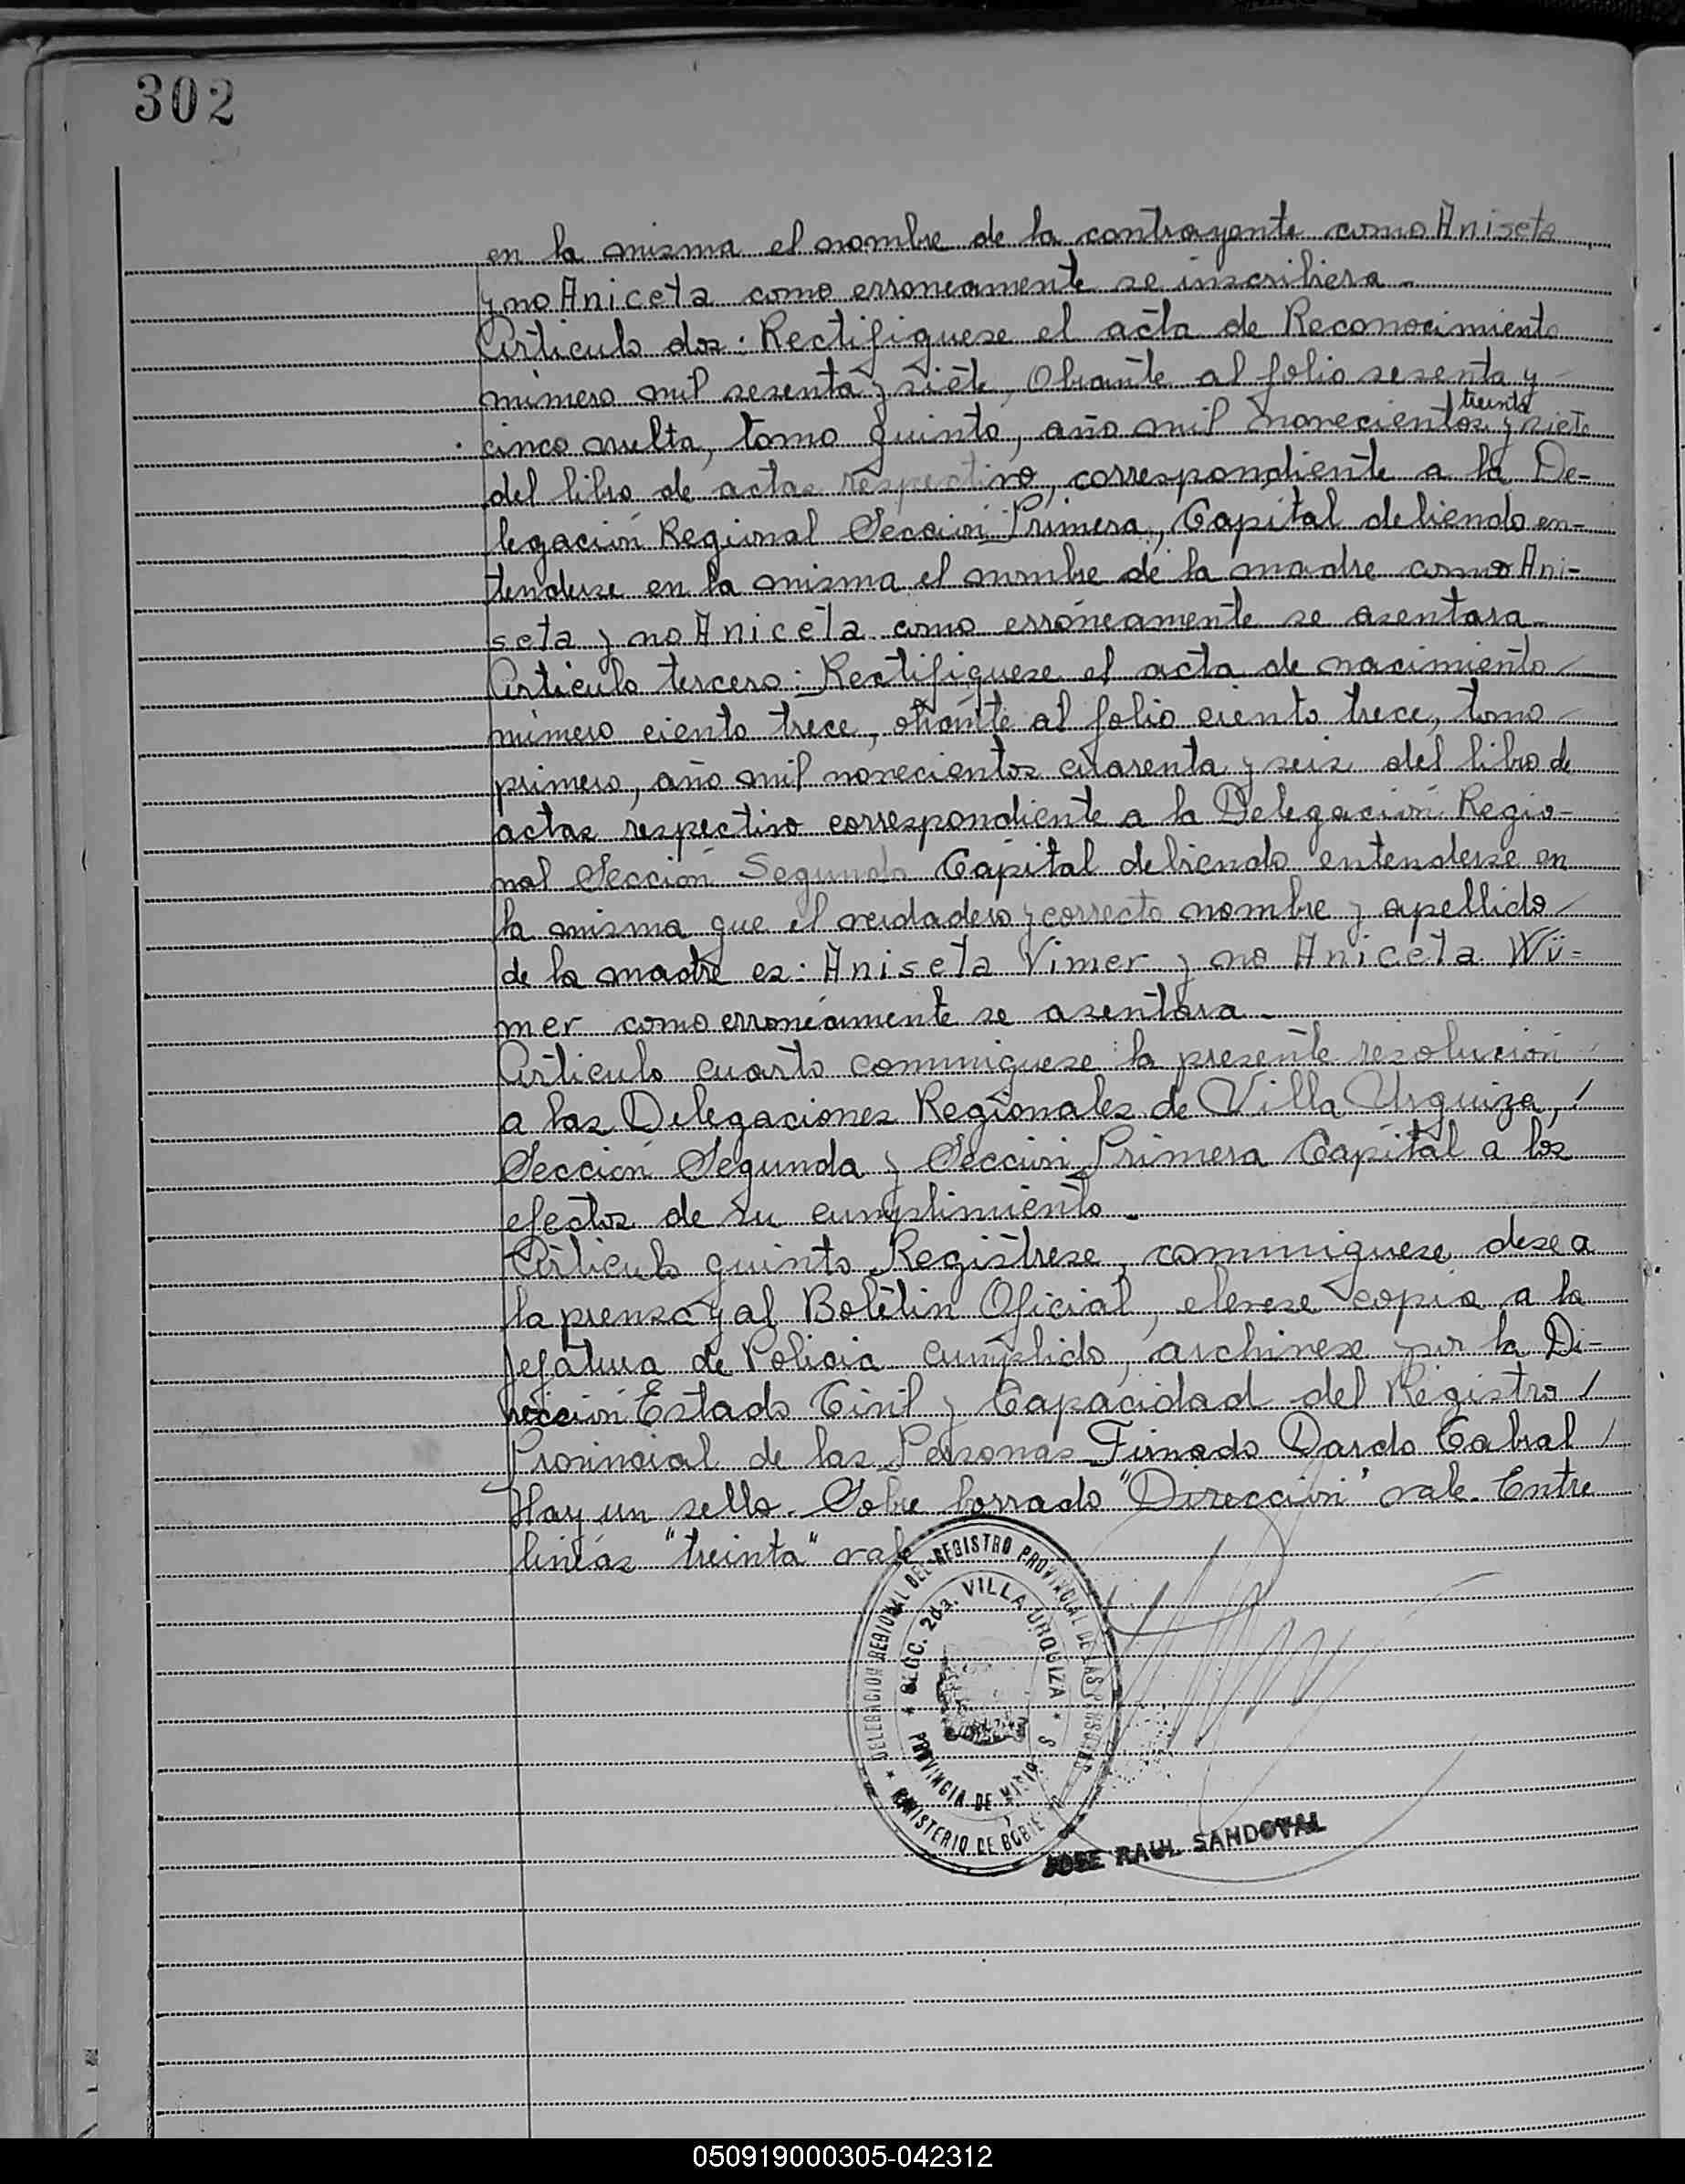 302
en la misma el nombre de la contrayente como Aniseta
y no Aniceta como erroneamente se inscribiera.
Articulo dos: Rectifiquese el acta de Reconocimiento
número mil sesenta y siete, Obrante al folio sesenta y
treinta
cinco vuelta, tomo quinto, año mil novecientos y siete
del libro de actas respectivo, correspondiente a la De-
legación Regional Sección Primera, Capital debiendo en-
tenderse en la misma el nombre de la madre como Ani-
seta y no Aniceta como erróneamente se asentara.
Articulo tercero: Rectifiquese el acta de nacimiento
número ciento trece, obrante al folio ciento trece, tomo
primero, año mil novecientos cuarenta y seis del libro de
actas respectivo correspondiente a la Delegación Regio-
nal Sección Segunda Capital debiendo entenderse en
la misma que el verdadero y correcto nombre y apellido
de la madre es: Aniseta Vimer y no Aniceta Wü=
mer como erroneámente se asentara.
Articulo cuarto comuniquese la presente resolución
a las Delegaciones Regionales de Villa Urquiza, /
Sección Segunda y Sección Primera Capital a los
efectos de su cumplimiento.
Articulo quinto Registrese, comuniquese, dese a
la prensa y al Boletin Oficial, elevese copia a la
Jefatura de Policia cumplido, archivese por la Di-
rección Estado Civil y Capacidad del Registro /
Provincial de las Personas Firmado Dardo Cabral /
Hay un sello. Sobre borrado "Dirección" vale. Entre
lineas "treinta" vale
DELEGACION REGIONAL DEL REGISTRO PROVINCIAL DE LAS PERSONAS
* SECC. 2da. VILLA URQUIZA *
PROVINCIA DE MISIONES
* MINISTERIO DE GOBIERNO
JOSE RAUL SANDOVAL
050919000305-042312